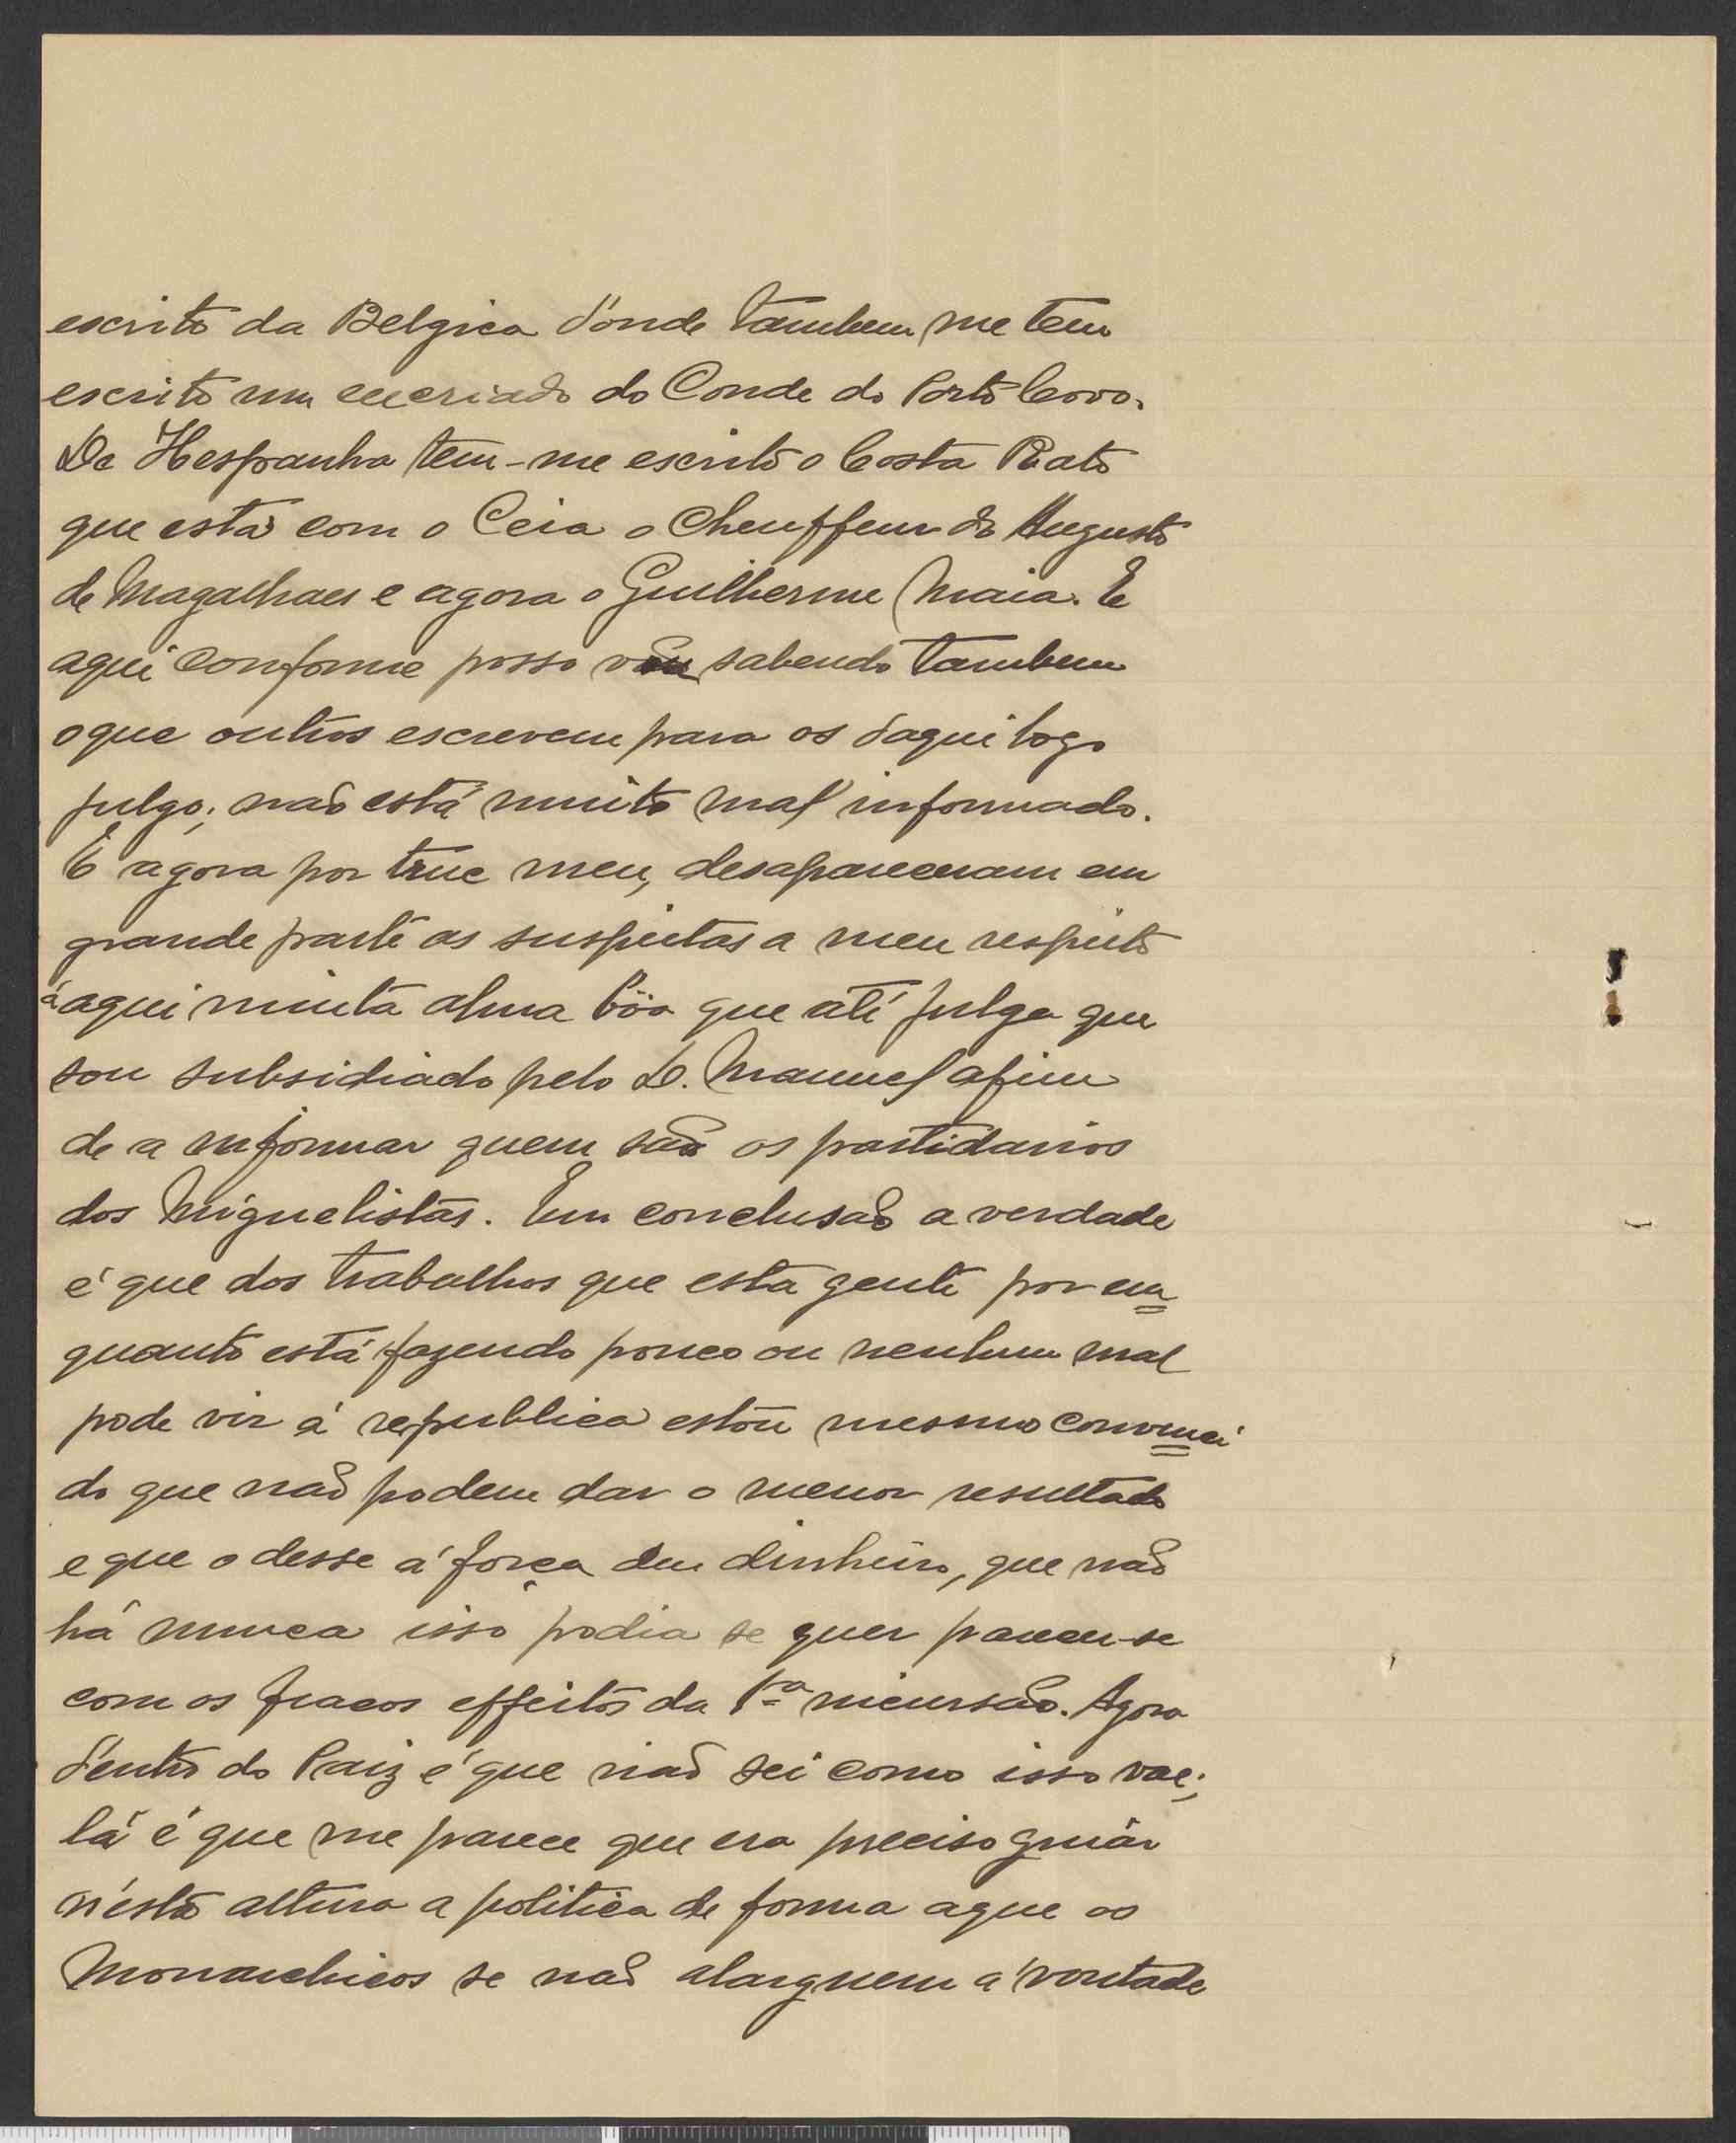 escrito da Belgica d'onde tambem me tem
escrito um excriado do Conde do Porto Covo.
De Hespanha tem-me escrito o Costa Rato
que está com o Ceia o Cheuffeur do Augusto
de Magalhaes e agora o Guilherme Maia. E
aqui conforme posso vou sabendo tambem
o que outros escrevem para os d'aqui logo
julgo; não está muito mal informado.
E agora por truc meu, desapareceram em
grande parte as suspeitas a meu respeito
á aqui muita alma bôa que até julga que
sou subsidiado pelo D. Manuel afim
de a informar quem são os partidarios
dos Miguelistas. Em conclusão a verdade
é que dos trabalhos que esta gente por em=
quanto está fazendo pouco ou nenhum mal
pode vir á republica estou mesmo convenci=
do que não podem dar o menor resultado
e que o desse á força de dinheiro, que não
há nunca isso podia se quer parecer-se
com os fracos effeitos da 1ª incursão. Agora
d'entro do Paiz é que não sei como isso vae;
lá é que me parece que era preciso guiar
n'esta altura a politica de forma a que os
Monarchicos se não alarguem á vontade